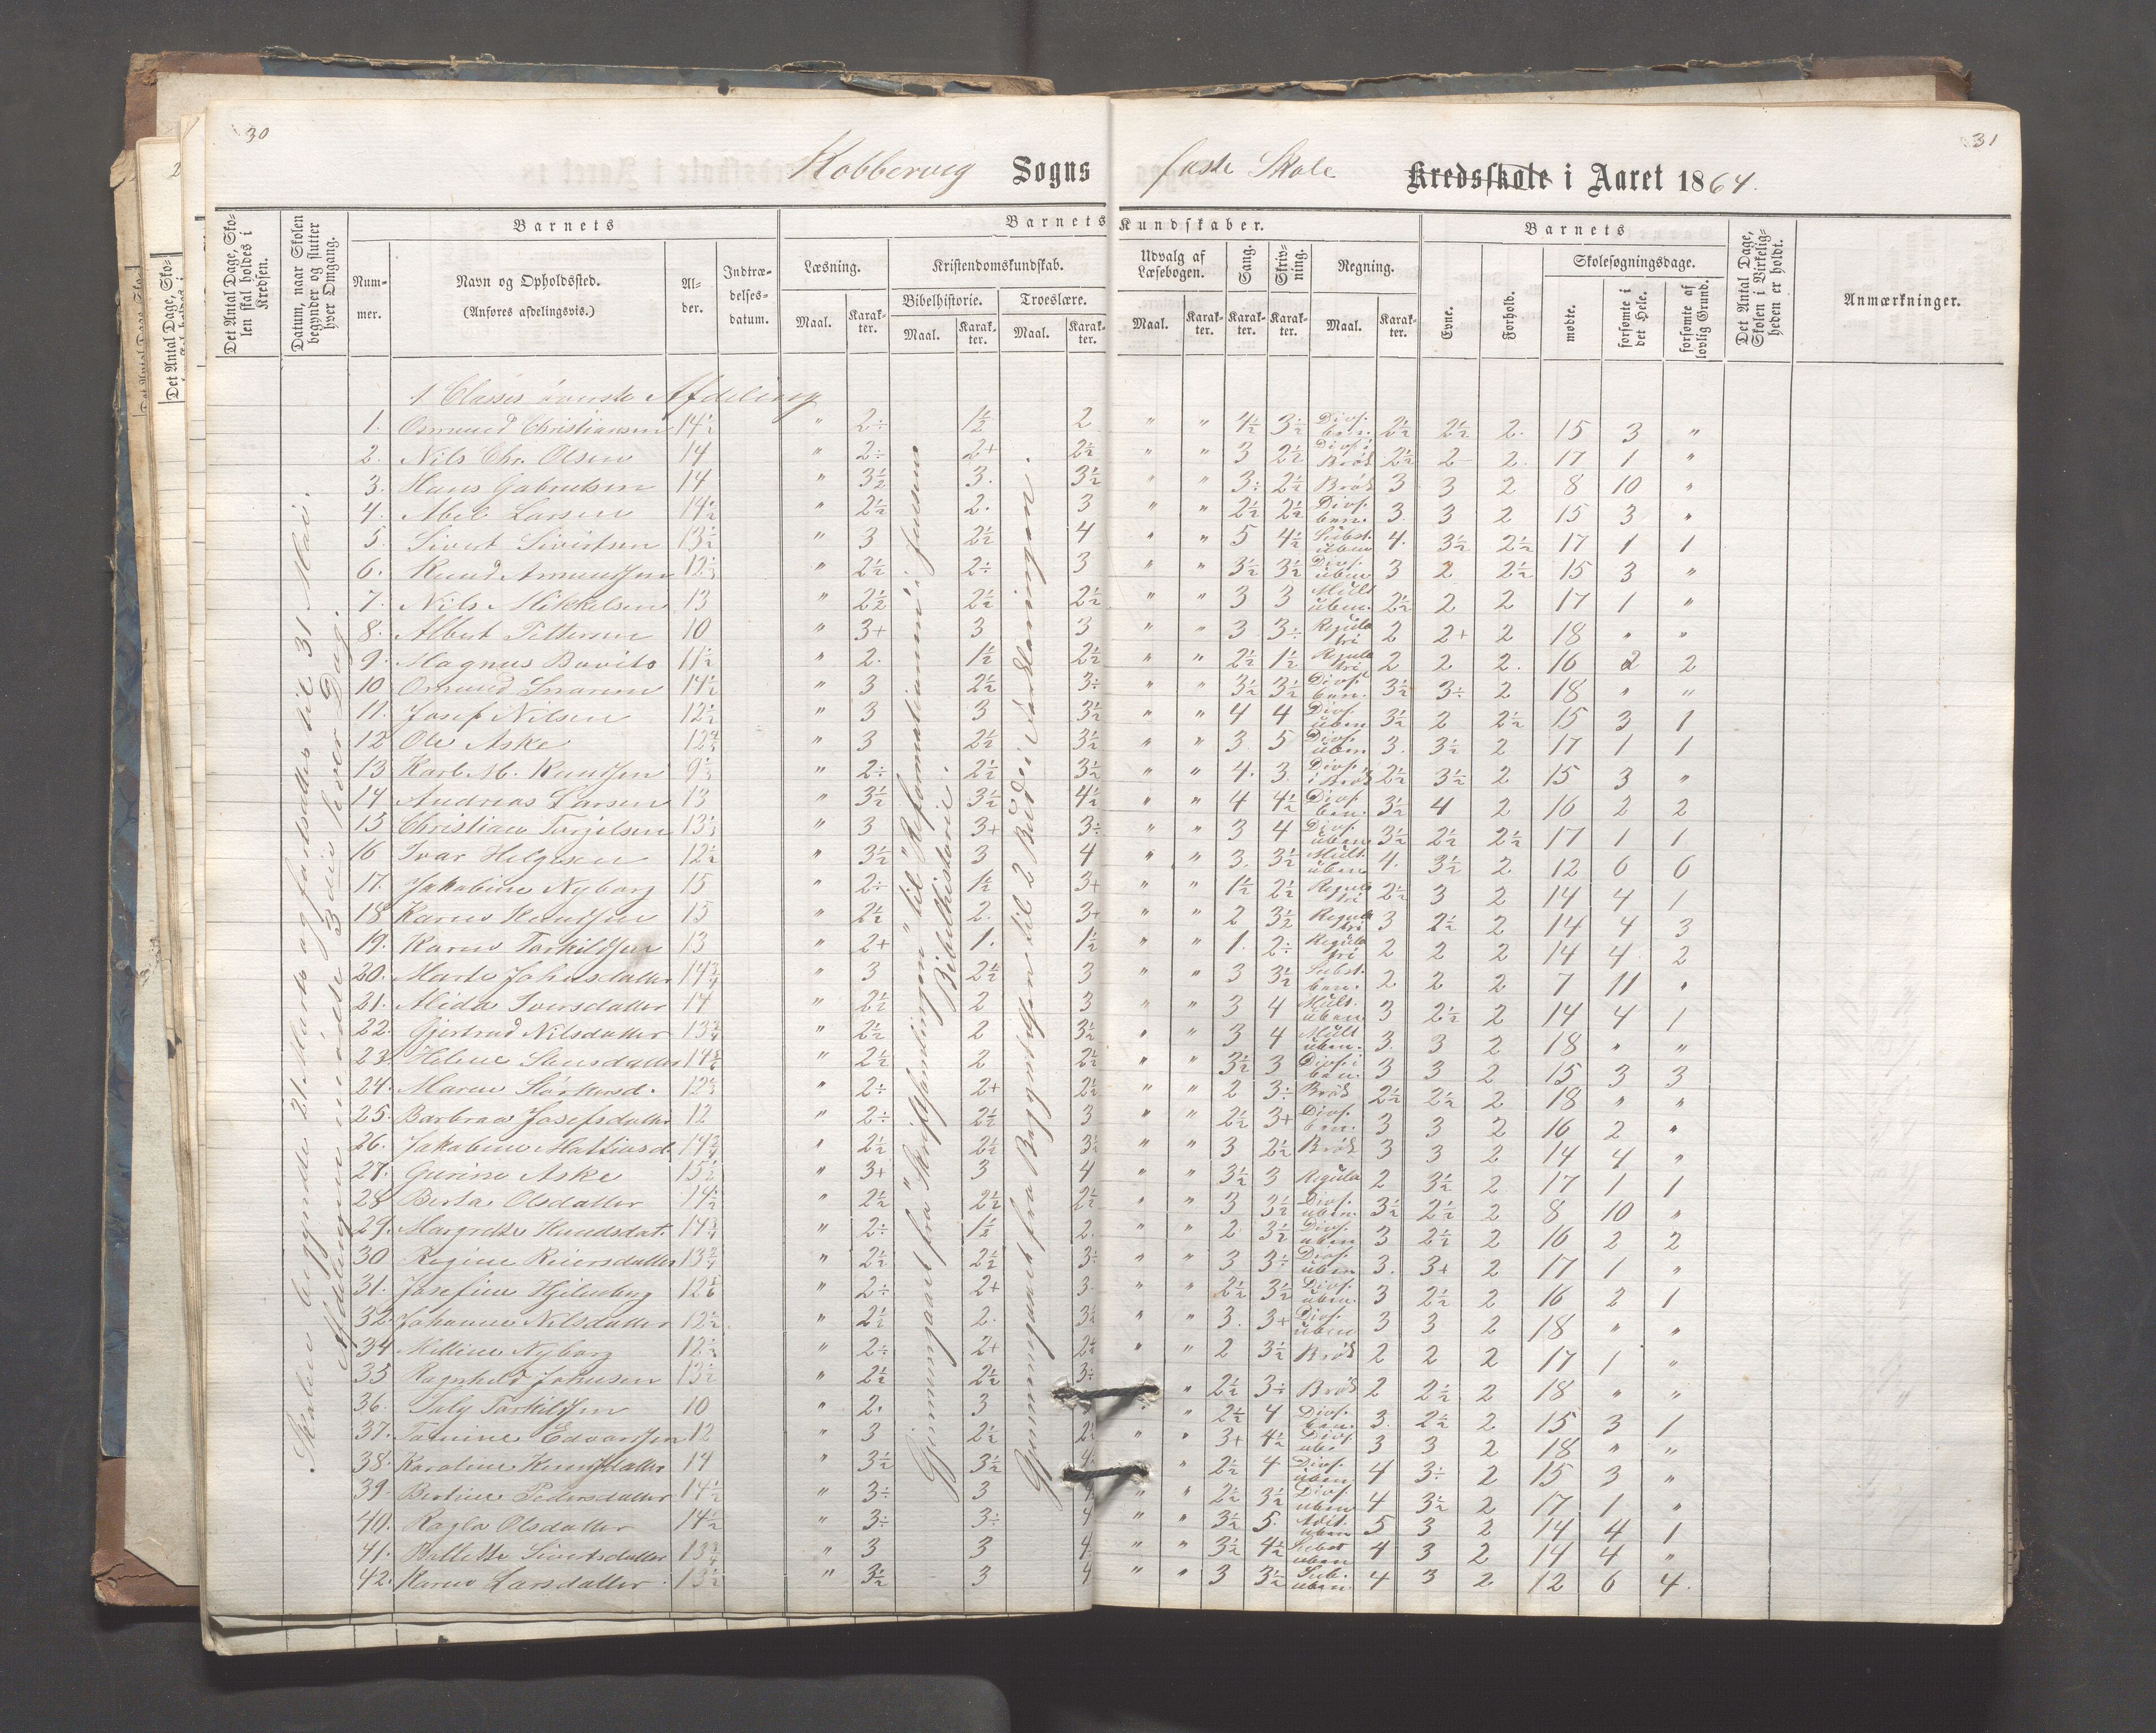 30
31
Kobbervig Sogns faste Skole Kredsskole i Aaret 1864.
Det Antal Dage, Skolen skal holdes i Kredsen.
Datum, naar Skolen begynder og slutter hver Omgang.
Barnets
Nummer.
Navn og Opholdssted.
(Anføres afdelingsvis.)
Alder.
Indtrædelsesdatum.
Barnets Kundskaber.
Læsning.
Kristendomskundskab.
Udvalg af Læsebogen.
Sang.
Skrivning.
Regning.
Bibelhistorie.
Troeslære.
Maal.
Karakter.
Maal.
Karakter.
Maal.
Karakter.
Maal.
Karakter.
Karakter.
Karakter.
Maal.
Karakter.
Barnets
Evne.
Forhold.
Skolesøgningsdage.
mødte.
forsømte i det Hele.
forsømte af lovlig Grund.
Det Antal Dage, Skolen i Virkeligheden er holdt.
Anmærkninger.
Skolen begyndte 21 Marts og fortsattes til 31 Mai.
Afdelingen mødte 3die hver Dag.
Gjennemgaaet fra "Skriftsamlingen" til "Reformationen" i Jensens Bibelhistorie.
Gjennemgaaet fra Begyndelsen til 2 Bud i Forklaringen.
1 Classes øverste Afdeling
1. Osmund Christiansen 14½ " 2÷ 1½ 2 " " 4½ 3½ Divs. ben. 2½ 2½ 2. 15 3 "
2. Nils Chr. Olsen 14 " 2÷ 2+ 2½ " " 3 2½ Divs i Brøk 2½ 2 2. 17 1 "
3. Hans Gabrielsen 14 " 3½ 3. 3½ " " 3÷ 2½ Brøk 3 3 2 8 10 "
4. Abel Larsen 14½ " 2½ 2. 3 " " 2½ 2½ Divs. ben. 3. 3 2 15 3 "
5. Sivert Sivertsen 13½ " 3 2½ 4 " " 5 4½ Subst. üben 4. 3½ 2½ 17 1 1
6. Knud Amundsen 12½ " 2½ 2÷ 3 " " 3½ 3½ Divs. üben 3 2 2½ 15 3 "
7. Nils Mikkelsen 13 " 2½ 2½ 2½ " " 3 3 Mült üben. 2½ 2 2 17 1 "
8. Albert Pettersen 10 " 3+ 3 3 " " 3 3÷ Regula tri 2 2+ 2 18 " "
9. Magnus 11½ " 2. 1½ 2½ " " 2½ 1½ Regula tri 2 2 2. 16 2 2
10 Osmund 14½ " 3 2½ 3÷ " " 3½ 3½ Divs. ben. 3½ 3÷ 2 18 " "
11. Josef Nilsen 12½ " 3 3 3½ " " 4 4 Divs. üben 3½ 2 2½ 15 3 1
12 Ole Aske " 3 2½ 3½ " " 3. 5 Divs. üben 3. 3½ 2 17 1 1
13 Karl M. Knudsen " 2÷ 2½ 3½ " " 4. 3. Divs. i Brøk 2½ 3½ 2 15 3 "
14 Andreas Larsen 13 " 3½ 3½ 4½ " " 4 4½ Divs. ben. 3½ 4 2 16 2 2
15 Christian Torjelsen " 3 3+ 3÷ " " 3 4 Divs. üben 3½ 2½ 2½ 17 1 1
16 Ivar Helgesen 12½ " 3½ 3 4 " " 3. 3½ Mült. üben 4. 3½ 2 12 6 6
17. Jakobine Nyborg 15 " 2÷ 1½ 3+ " " 1½ 2½ Regula tri 2½ 3 2 14 4 1
18 Karen Knudsen 15 " 2½ 2. 3+ " " 2 3½ Regula tri 3 2½ 2 14 4 3
19. Karen Torkildsen 13 " 2+ 1. 1½ " " 1. 2÷ Regula tri 2 2 2 14 4 2
20. Marte Johnsdatter 14¾ " 3 2½ 3 " " 3 3½ Subst. ben. 2 2 2 7 11 "
21. Alida Iversdatter 14 " 2½ 2 3 " " 3 4 Mült. üben 3 2½ 2 14 4 1
22. Gjertrud Nilsdatter 13¾ " 2½ 2 3½ " " 3 4 Mült üben. 3. 3 2 18 " "
23. Helene " 2½ 2 2½ " " 3½ 3 Divs. i ben. 3 3 2 15 3 3
24. Maren Størkersd. " 2÷ 2+ 2½ " " 2 3÷ Brøk 2½ 2½ 2 18 " "
25. Barbra Josefsdatter 12 " 2÷ 2½ 3 " " 2½ 3+ Divs. ben. 3 3 2 16 2 "
26. Jakobine Mathiasd. 14¾ " 2½ 2½ 3½ " " 3 2½ Brøk 3 3 2 14 4 "
27. Gurine Aske 15½ " 3+ 3 4 " " 3½ 3 Regula 2 3½ 2 17 1 1
28 Berta Olsdatter 14½ " 2½ 2½ 2½ " " 3 3½ Divs. üben. 3½ 2½ 2 8 10 "
29. Margrethe Knudsdat. 14¾ " 2÷ 1½ 2. " " 2 3½ Divs. üben 3 2½ 2 16 2 2
30 Regine Reiersdatter 13¾ " 2½ 2½ 3÷ " " 3 3÷ Divs. üben 3. 3+ 2 17 1 "
31. Josefine " 2÷ 2+ 3. " " 2½ 3½ Divs. üben. 3 2½ 2 16 2 1
32. Johanne Nilsdatter 12½ " 2½ 2. 3½ " " 3. 3+ Divs. üben 3 3 2 18 " "
34 Nyborg 12½ " 2÷ 2+ 2½ " " 2 3½ Brøk 2 2 2 17 1 "
35 Ragnhild Johnsen 13½ " 2½ 2½ 3÷ " 2½ 3÷ Brøk 2 2½ 2 18 " "
36. Torkildsen 10 " 2. 3 " " 2½ 4 Divs. ben. 3. 2½ 2 15 3 1
37. Edvardsen 12 " 3 2½ 2½ " " 3+ 4½ Divs 3 3 2 18 " "
38. Karoline Knudsdatter 14 " 3½ 3½ 4 " 2½ 4 Divs. üben 4 3÷ 2 15 3 "
39. Bertine Pedersdatter 14½ " 3÷ 3 " " 2½ 3½ Divs. uben 4 3½ 2 17 1 "
40. Ragla Olsdatter 14½ " 3÷ 3÷ 4 " " 3½ 5. Adit. uben 5 3 2 14 4 1
41. Sivertsdatter 13¾ " 3 3 4 " " 3½ 4½ Subst uben 4 3 2 14 4 "
42. Karen Larsdatter. 13½ " 3½ 3 4 " " 3 3½ Sub. üben. 4 3 2 12 6 4.